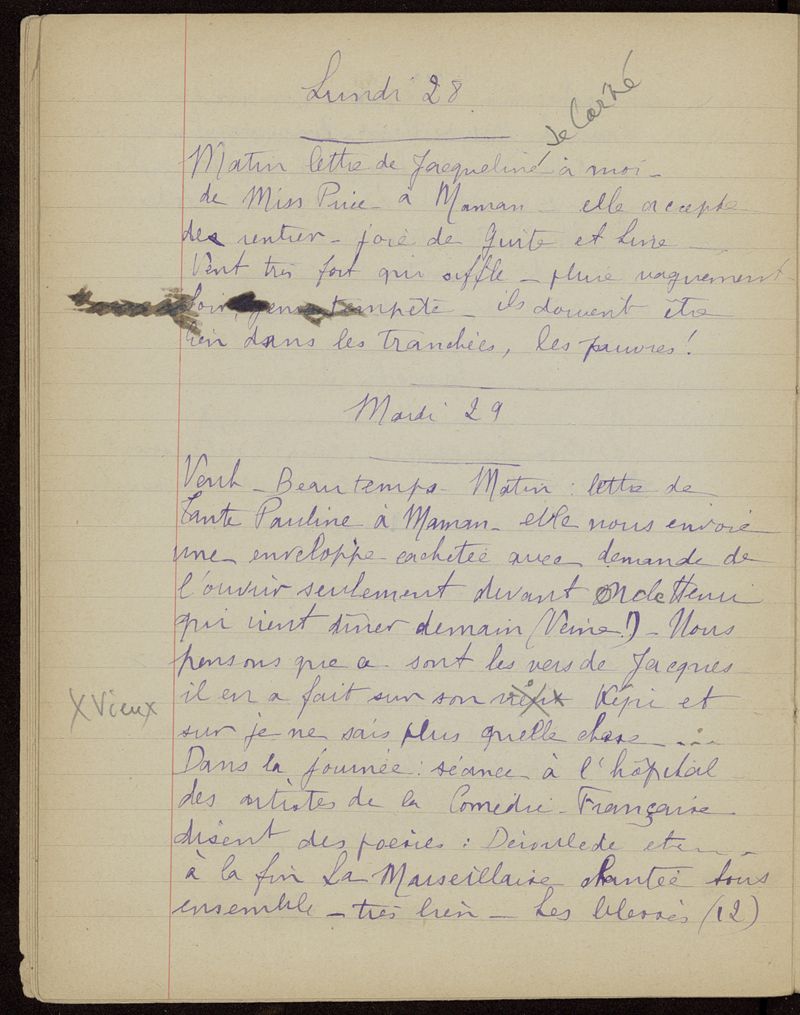 Lundi 28
Le Carré
Matin lettre de Jacqueline à moi –
de Miss Price à Maman – elle accepte
de rentrer – joie de Guite et Lure –
Vent très fort qui siffle – pluie vaguement
tempête – ils doivent être
bien dans les tranchées, les pauvres !
Mardi 29
Vent – Beau temps – Matin : lettre de
Tante Pauline à Maman – elle nous envoie
une enveloppe cachetée avec demande de
l'ouvrir seulement devant Oncle Henri
qui vient dîner demain (Veine !) – Nous
pensons que ce sont les vers de Jacques
il en a fait sur son Képi et
X Vieux
sur je ne sais plus quelle chose ....
Dans la journée : séance à l'hôpital
des artistes de la Comédie – Française
disent des poésies : Déroulède etc –
à la fin La Marseillaise chantée tous
ensemble – très bien – Les blessés (12)